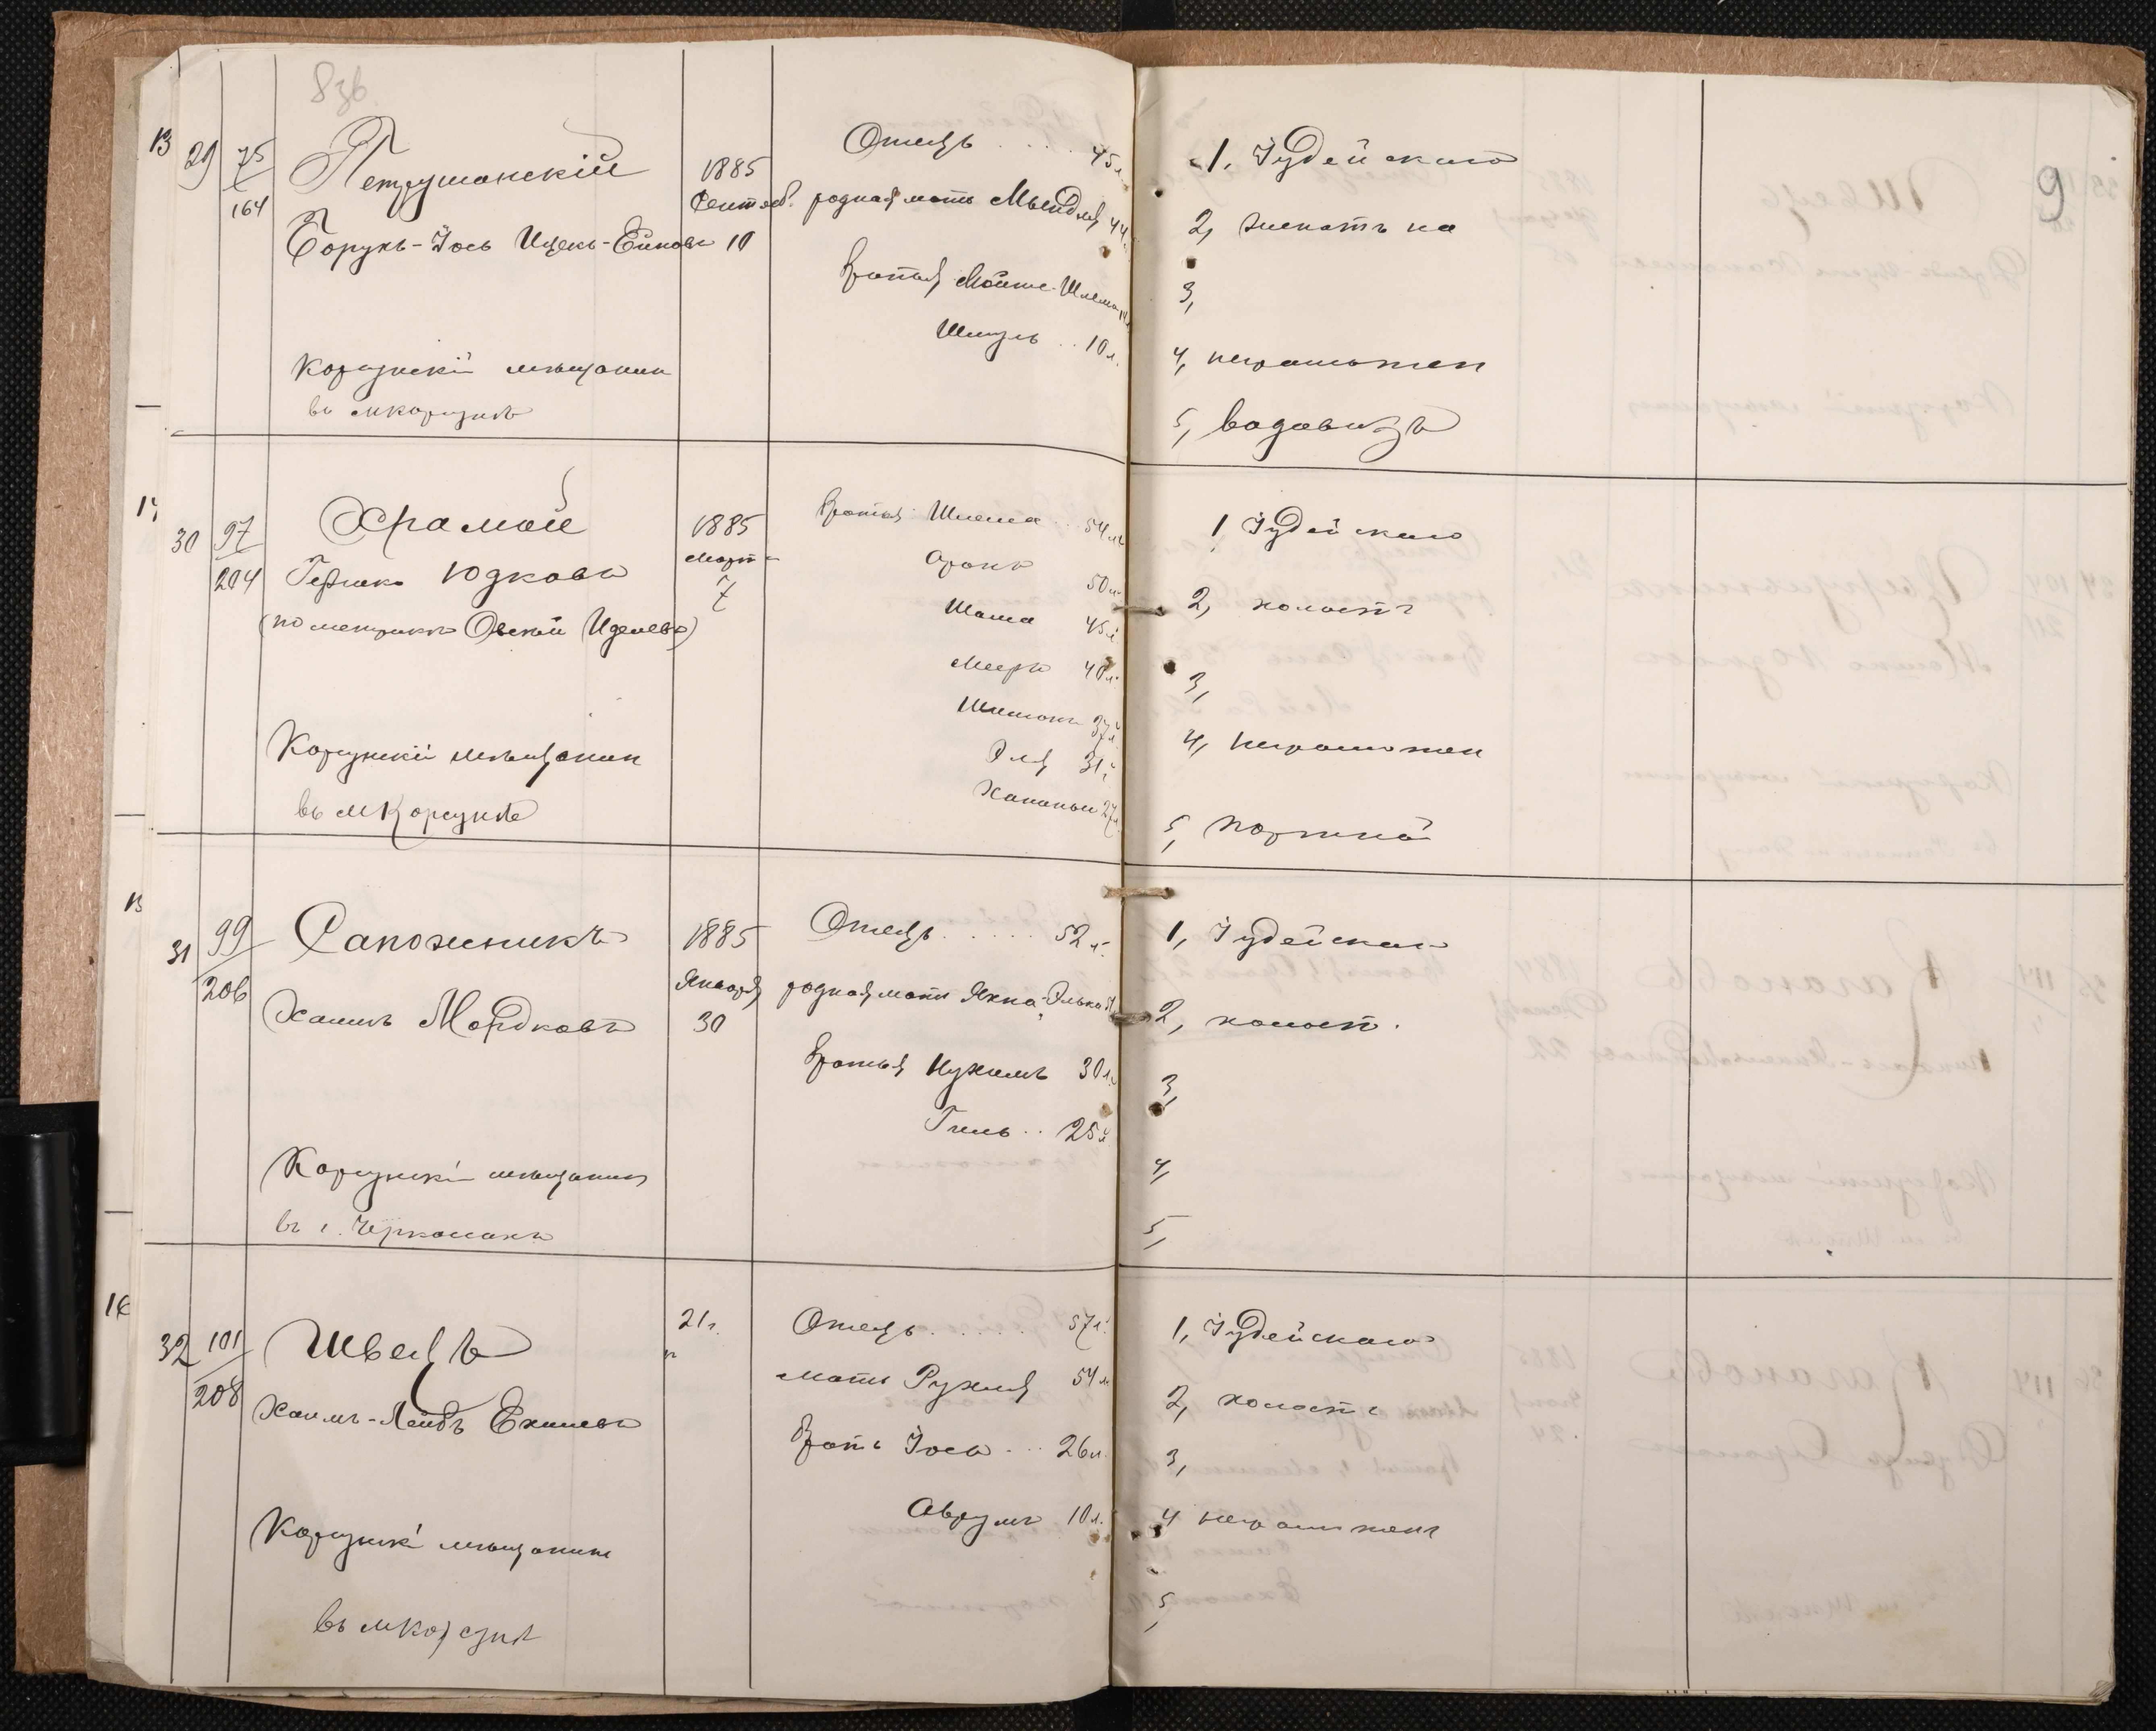 8зв
9
13 29 75/164 Петрушанскій 1885 Отецъ .... 45 л. 1, Іудейскаго
Сентяб. родная мать 44
Борухъ-Іось Ицекъ- 10 2, женатъ
братья Мойше-Шлема 3,
Шмуль .. 10 л.
Корсунскій мѣщанинъ 4, неграмотен
въ м Корсунѣ 5,
14 30 97/204 Храмой 1885 братья Шлема .. 54 л. 1 Іудейскаго
Гершко Юдковъ Март 7 Аронъ 50 л.
(по метрикѣ Овсей Иделевъ) Шама 45 л. 2, холостъ
Мееръ 40 л. 3,
Шимонъ 37 л.
Корсунскій мѣщанин Эля 31 л. 4, неграмотен
Хананья 27 л.
въ м Корсунѣ 5, портной
15 31 99/206 Сапожникъ 1885 Отецъ ..... 52 л. 1, Іудейскаго
Января родная мать Яхна-Элька
Хаимъ Мордковъ 30 2, холост.
братья Нухимъ 30 л. 3,
Гиль .. 25 л.
Корсунскій мѣщанинъ 4,
въ г. Черкасахъ 5,
16 32 101/208 Швецъ 21 г. Отецъ ..... 57 л. 1, Іудейскаго
мать Рухля 54 л.
Хаимъ-Лейбъ Ехилевъ 2, холостъ
братъ Іось ... 26 л. 3,
Аврумъ 10 л. 4 неграмотенъ
Корсунскій мѣщанинъ
въ м Корсунѣ 5,